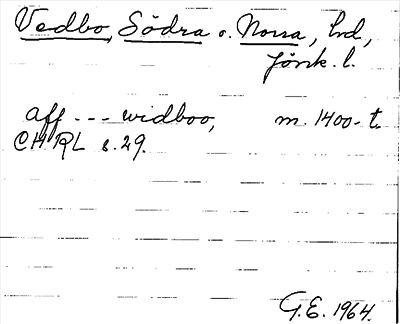 Vedbo, Södra o. Norra, hd,
Jönk. l.
aff --- widboo, m. 1400-t.
CHRL s. 29.
G.E. 1964.